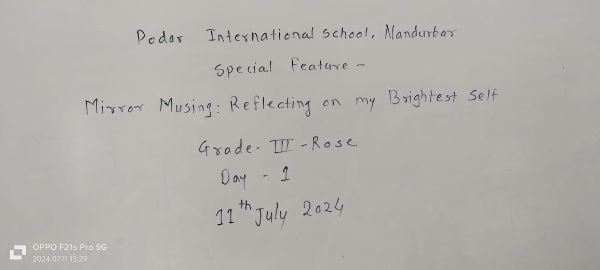 Podar International School, Nandurbar
Special Feature -
Mirror Musing: Reflecting on my Brightest Self
Grade - III - Rose
Day - 1
11th July 2024
OPPO F21s Pro 5G
2024.07.11 13:29